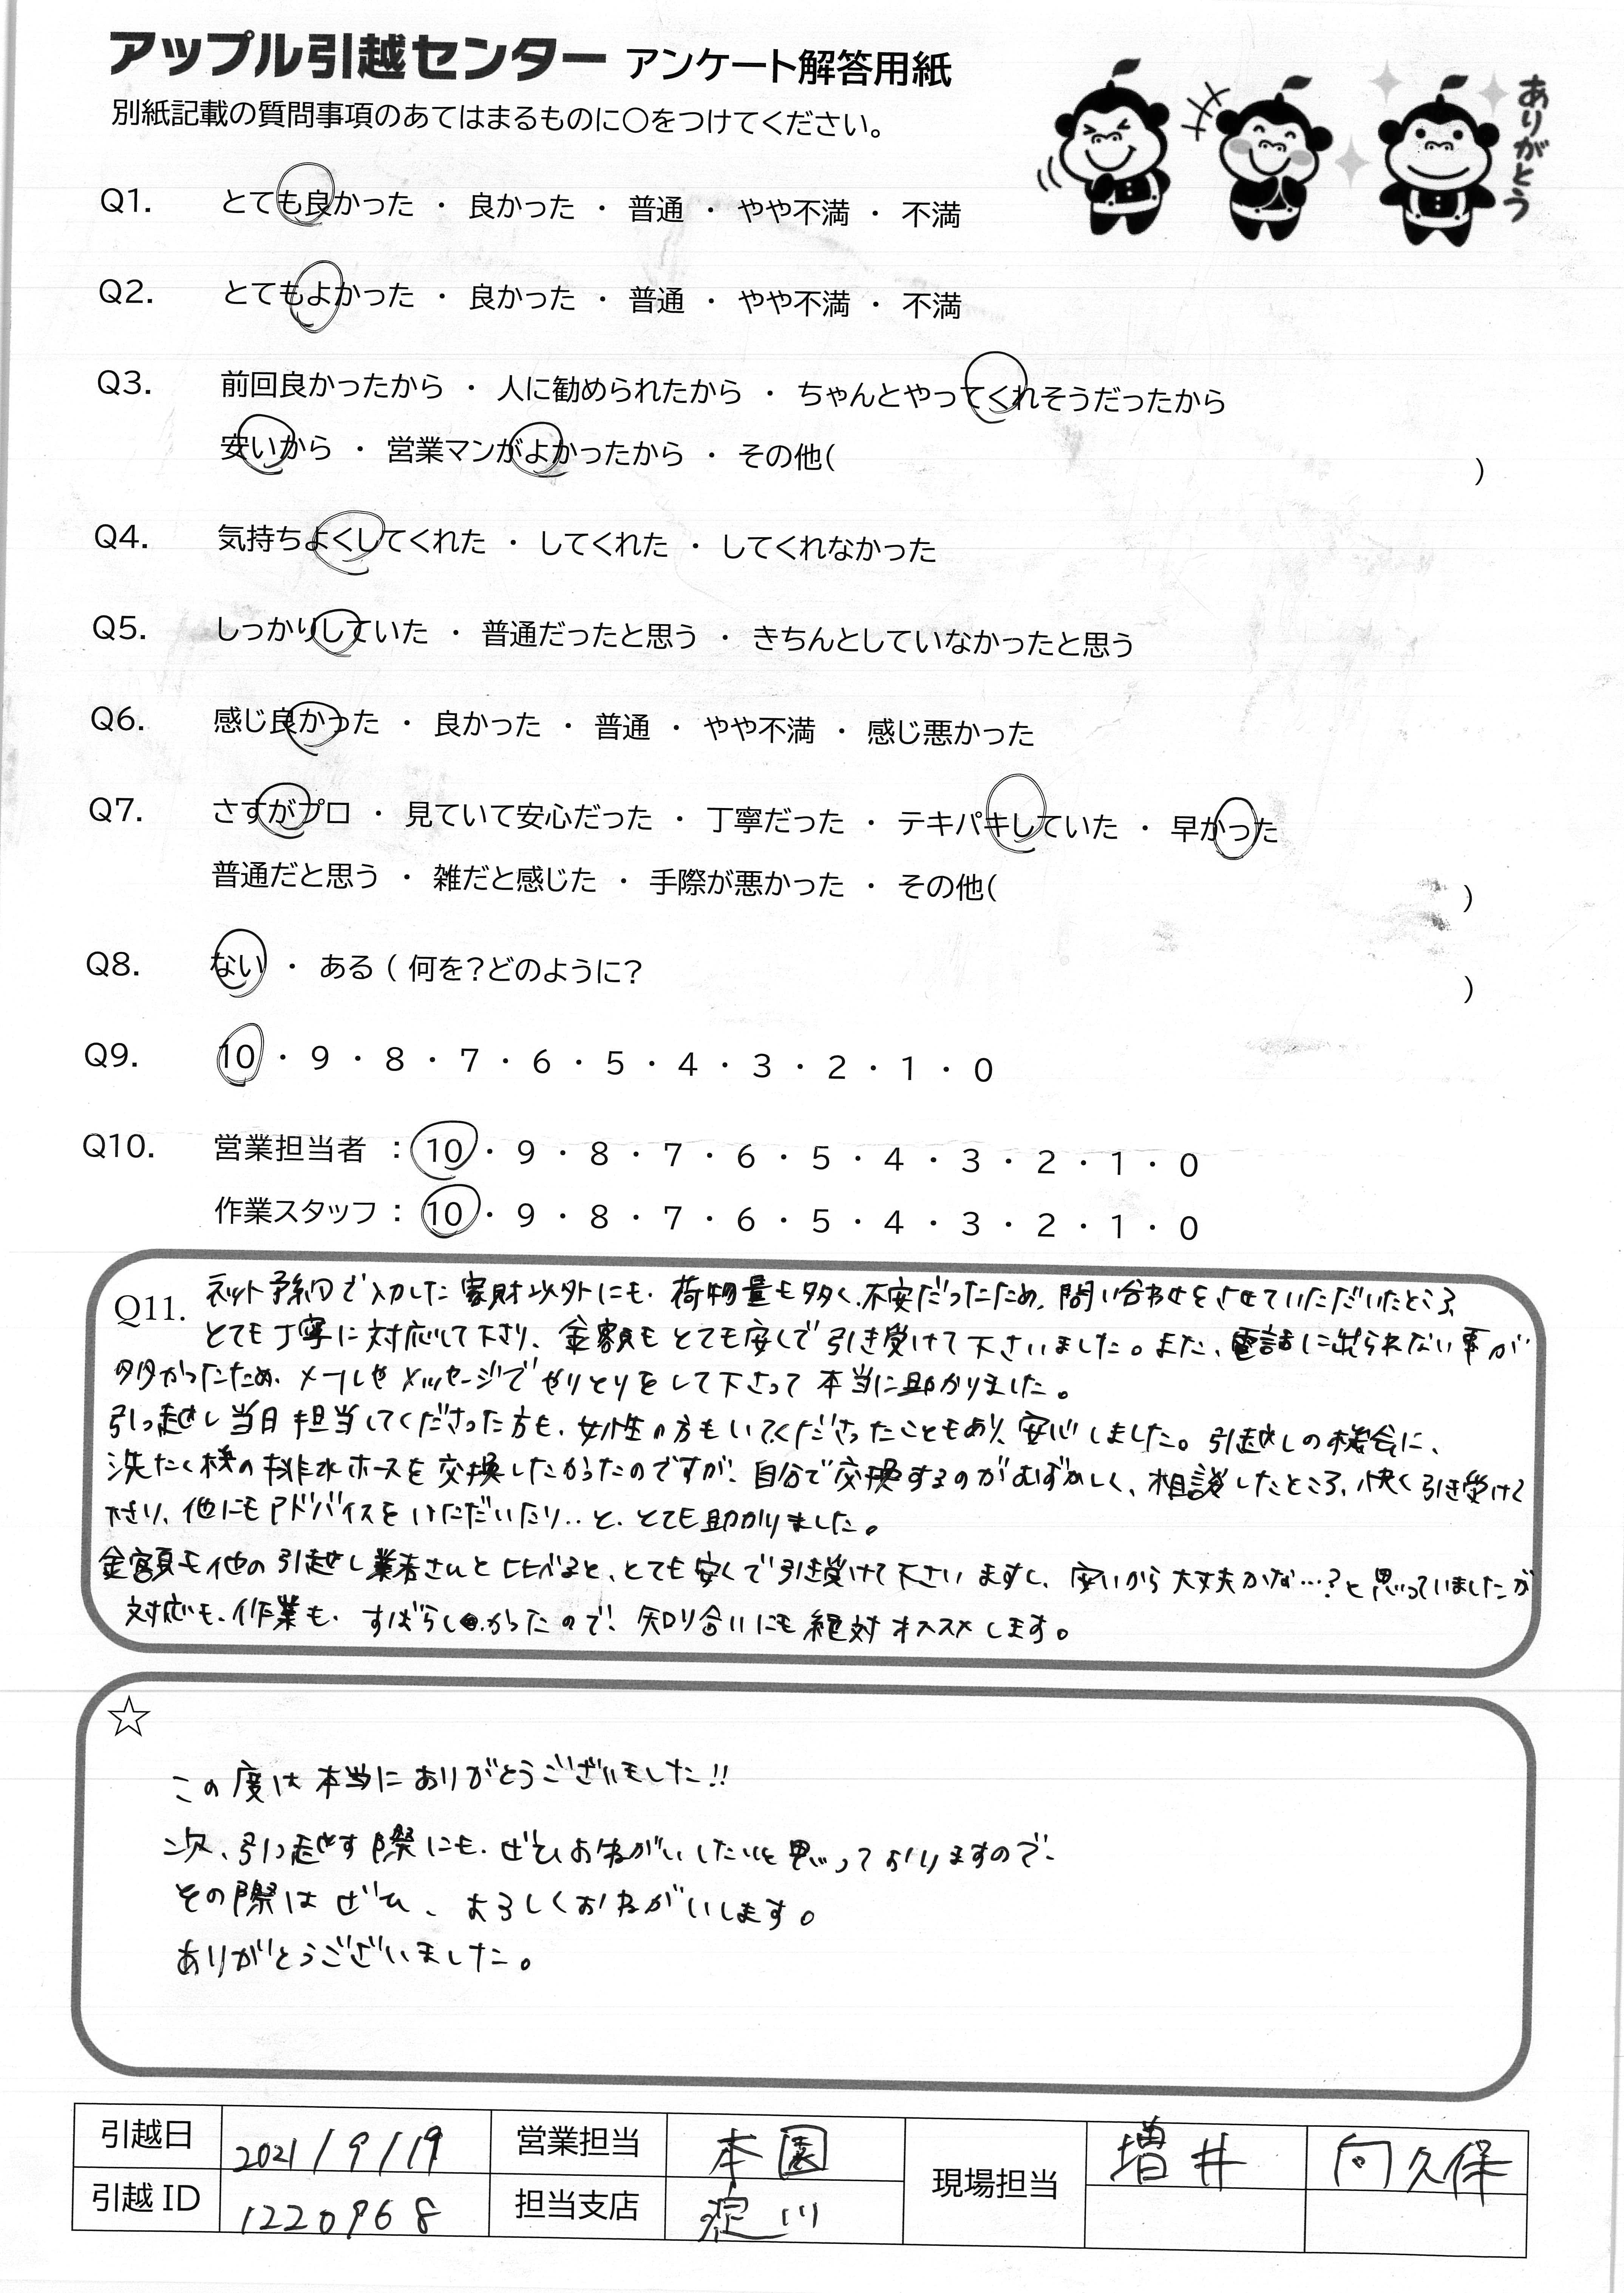 アップル引越センター アンケート解答用紙
別紙記載の質問事項のあてはまるものに○をつけてください。
ありがとう
Q1. とても良かった ・ 良かった ・ 普通 ・ やや不満 ・ 不満
Q2. とてもよかった ・ 良かった ・ 普通 ・ やや不満 ・ 不満
Q3. 前回良かったから ・ 人に勧められたから ・ ちゃんとやってくれそうだったから
安いから ・ 営業マンがよかったから ・ その他( )
Q4. 気持ちよくしてくれた ・ してくれた ・ してくれなかった
Q5. しっかりしていた ・ 普通だったと思う ・ きちんとしていなかったと思う
Q6. 感じ良かった ・ 良かった ・ 普通 ・ やや不満 ・ 感じ悪かった
Q7. さすがプロ ・ 見ていて安心だった ・ 丁寧だった ・ テキパキしていた ・ 早かった
普通だと思う ・ 雑だと感じた ・ 手際が悪かった ・ その他( )
Q8. ない ・ ある ( 何を?どのように? )
Q9. 10 ・ 9 ・ 8 ・ 7 ・ 6 ・ 5 ・ 4 ・ 3 ・ 2 ・ 1 ・ 0
Q10. 営業担当者 : 10 ・ 9 ・ 8 ・ 7 ・ 6 ・ 5 ・ 4 ・ 3 ・ 2 ・ 1 ・ 0
作業スタッフ : 10 ・ 9 ・ 8 ・ 7 ・ 6 ・ 5 ・ 4 ・ 3 ・ 2 ・ 1 ・ 0
Q11. ネット予約で入力した家財以外にも、荷物量も多く、不安だったため、問い合わせをさせていただいたところ、
とても丁寧に対応して下さり、金額もとても安くで引き受けて下さいました。また、電話に出られない事が
多かったため、メールやメッセージでやりとりをして下さって本当に助かりました。
引っ越し当日担当してくださった方も、女性の方もいてくださったこともあり、安心しました。引越しの機会に、
洗たく機の排水ホースを交換したかったのですが、自分で交換するのがむずかしく、相談したところ、快く引き受けて
下さり、他にもアドバイスをいただいたり‥と、とても助かりました。
金額も他の引越し業者さんと比べると、とても安くで引き受けて下さいますし、安いから大丈夫かな…?と思っていましたが
対応も、作業も、すばらしかったので、知り合いにも絶対オススメします。
☆
この度は本当にありがとうございました!!
次、引っ越す際にも、ぜひお願がいしたいと思っておりますので、
その際はぜひ、よろしくおねがいします。
ありがとうございました。
引越日 2021/9/19 営業担当 本園 現場担当 増井 向久保
引越ID 1220968 担当支店 淀川